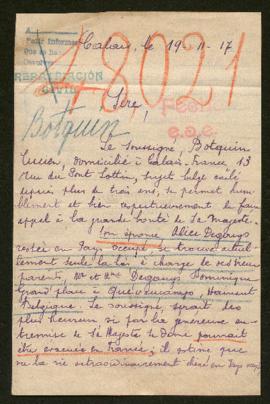 Calais, le 19-11-17.
48021
REPATRIACIÓN
CIVIL
Botquin
Sire,
Le soussigné, Botquin
Lucien, domicilié à Calais-France 13
rue du Pont Lottin, sujet belge exilé
depuis plus de trois ans, se permet hum-
blement et bien respectueusement de faire
appel à la grande bonté de Sa Majesté.
Son épouse Alice Degauqu
restée en Pays occupé se trouve actuel-
lement seule là-bas à charge de ses vieux
parents, Mr et Mme Dominique
Grand'place à Quévaucamps, Hainaut
Belgique. Le soussigné serait des
plus heureux si par la généreuse en-
tremise de Sa Majesté la dame pourrait
être évacuée en France, il estime que
la vie extraordinairement chère en Pays